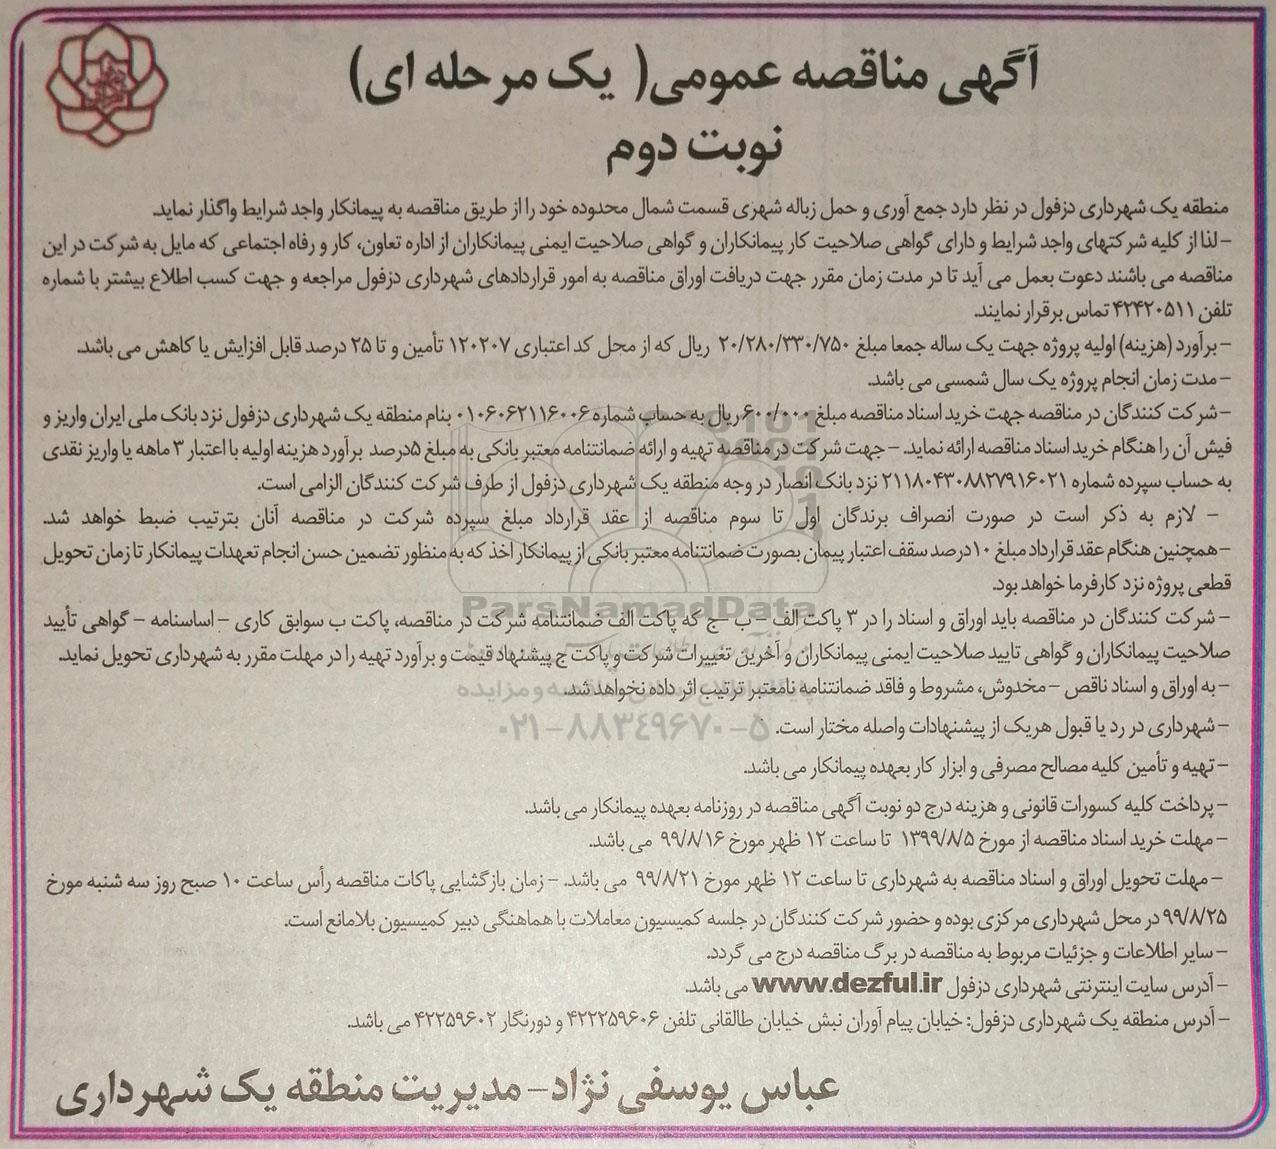 آگهی مناقصه عمومی( یک مرحله ای)
نوبت دوم
منطقه یک شهرداری دزفول در نظر دارد جمع آوری و حمل زباله شهری قسمت شمال محدوده خود را از طریق مناقصه به پیمانکار واجد شرایط واگذار نماید.
- لذا از کلیه شرکتهای واجد شرایط و دارای گواهی صلاحیت کار پیمانکاران و گواهی صلاحیت ایمنی پیمانکاران از اداره تعاون، کار و رفاه اجتماعی که مایل به شرکت در این
مناقصه می باشند دعوت بعمل می آید تا در مدت زمان مقرر جهت دریافت اوراق مناقصه به امور قراردادهای شهرداری دزفول مراجعه و جهت کسب اطلاع بیشتر با شماره
تلفن ۴۲۴۲۰۵۱۱ تماس برقرار نمایند.
- برآورد (هزینه) اولیه پروژه جهت یک ساله جمعا مبلغ ۲۰/۲۸۰/۳۳۰/۷۵۰ ریال که از محل کد اعتباری ۱۲۰۲۰۷ تأمین و تا ۲۵ درصد قابل افزایش یا کاهش می باشد.
- مدت زمان انجام پروژه یک سال شمسی می باشد.
- شرکت کنندگان در مناقصه جهت خرید اسناد مناقصه مبلغ ۶۰۰/۰۰۰ ریال به حساب شماره ۰۱۰۶۰۶۲۱۱۶۰۰۶ بنام منطقه یک شهرداری دزفول نزد بانک ملی ایران واریز و
فیش آن را هنگام خرید اسناد مناقصه ارائه نماید. - جهت شرکت در مناقصه تهیه و ارائه ضمانتنامه معتبر بانکی به مبلغ ۵درصد برآورد هزینه اولیه با اعتبار ۳ ماهه یا واریز نقدی
به حساب سپرده شماره ۲۱۱۸۰۴۳۰۸۸۲۷۹۱۶۰۲۱ نزد بانک انصار در وجه منطقه یک شهرداری دزفول از طرف شرکت کنندگان الزامی است.
- لازم به ذکر است در صورت انصراف برندگان اول تا سوم مناقصه از عقد قرارداد مبلغ سپرده شرکت در مناقصه آنان بترتیب ضبط خواهد شد.
- همچنین هنگام عقد قرارداد مبلغ ۱۰درصد سقف اعتبار پیمان بصورت ضمانتنامه معتبر بانکی از پیمانکار اخذ که به منظور تضمین حسن انجام تعهدات پیمانکار تا زمان تحویل
قطعی پروژه نزد کارفرما خواهد بود.
- شرکت کنندگان در مناقصه باید اوراق و اسناد را در ۳ پاکت الف - ب - ج که پاکت الف ضمانتنامه شرکت در مناقصه، پاکت ب سوابق کاری - اساسنامه - گواهی تأیید
صلاحیت پیمانکاران و گواهی تایید صلاحیت ایمنی پیمانکاران و آخرین تغییرات شرکت و پاکت ج پیشنهاد قیمت و برآورد تهیه را در مهلت مقرر به شهرداری تحویل نماید.
- به اوراق و اسناد ناقص - مخدوش، مشروط و فاقد ضمانتنامه نامعتبر ترتیب اثر داده نخواهد شد.
- شهرداری در رد یا قبول هریک از پیشنهادات واصله مختار است.
- تهیه و تأمین کلیه مصالح مصرفی و ابزار کار بعهده پیمانکار می باشد.
- پرداخت کلیه کسورات قانونی و هزینه درج دو نوبت آگهی مناقصه در روزنامه بعهده پیمانکار می باشد.
- مهلت خرید اسناد مناقصه از مورخ ۱۳۹۹/۸/۵ تا ساعت ۱۲ ظهر مورخ ۹۹/۸/۱۶ می باشد.
- مهلت تحویل اوراق و اسناد مناقصه به شهرداری تا ساعت ۱۲ ظهر مورخ ۹۹/۸/۲۱ می باشد. - زمان بازگشایی پاکات مناقصه رأس ساعت ۱۰ صبح روز سه شنبه مورخ
۹۹/۸/۲۵ در محل شهرداری مرکزی بوده و حضور شرکت کنندگان در جلسه کمیسیون معاملات با هماهنگی دبیر کمیسیون بلامانع است.
- سایر اطلاعات و جزئیات مربوط به مناقصه در برگ مناقصه درج می گردد.
- آدرس سایت اینترنتی شهرداری دزفول www.dezful.ir می باشد.
- آدرس منطقه یک شهرداری دزفول: خیابان پیام آوران نبش خیابان طالقانی تلفن ۴۲۲۲۵۹۶۰۶ و دورنگار ۴۲۲۵۹۶۰۲ می باشد.
عباس یوسفی نژاد - مدیریت منطقه یک شهرداری
ParsNamadData
پایگاه اطلاع رسانی مناقصه و مزایده
۰۲۱-۸۸۳۴۹۶۷۰-۵